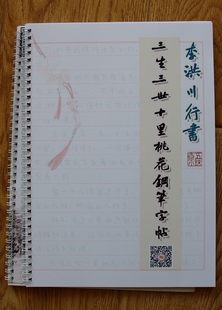 李洪川行書
三生三世十里桃花鋼筆字帖